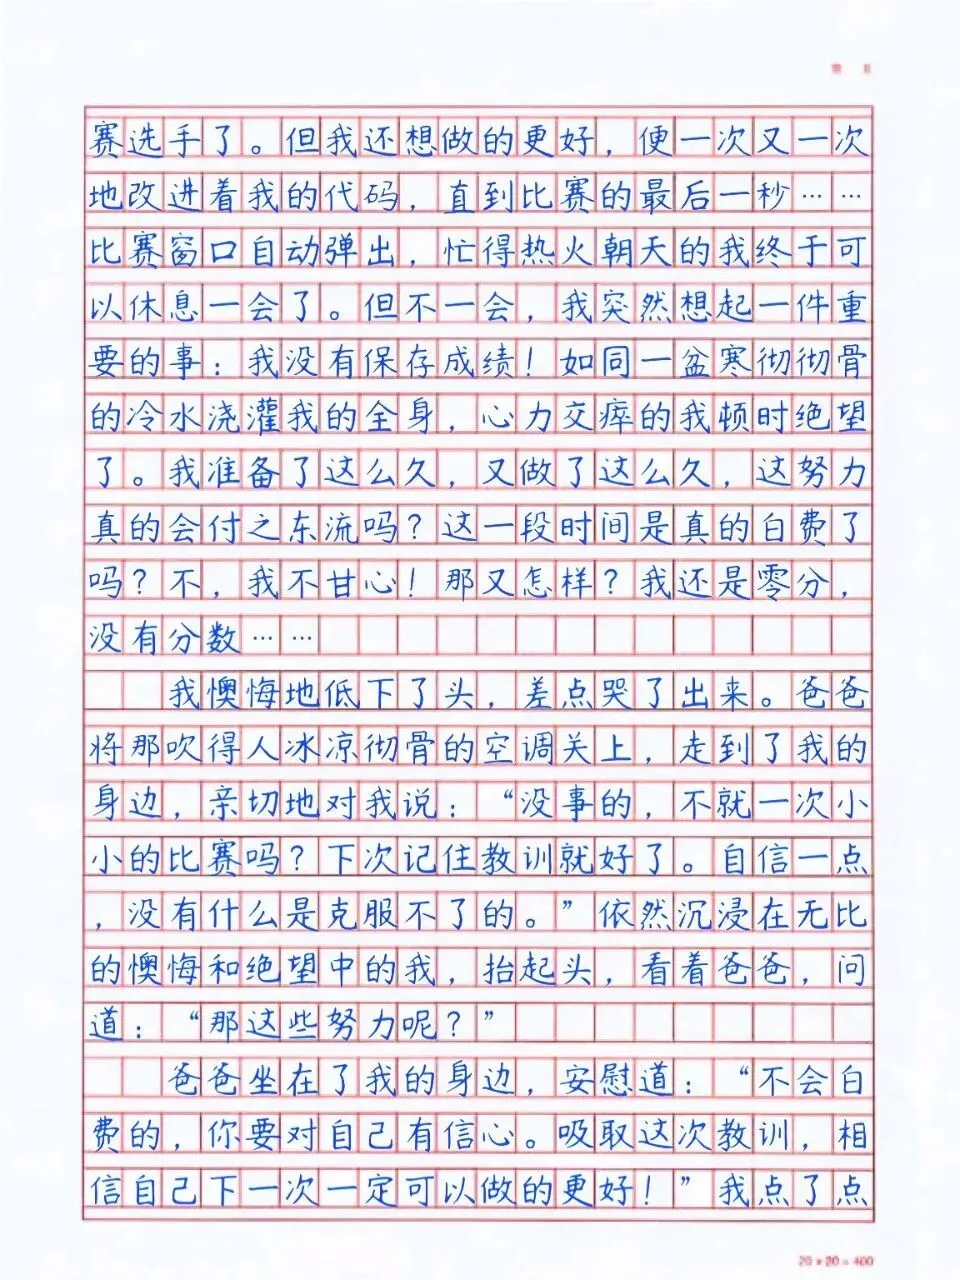 赛选手了。但我还想做的更好，便一次又一次
地改进着我的代码，直到比赛的最后一秒……
比赛窗口自动弹出，忙得热火朝天的我终于可
以休息一会了。但不一会，我突然想起一件重
要的事：我没有保存成绩！如同一盆寒彻彻骨
的冷水浇灌我的全身，心力交瘁的我顿时绝望
了。我准备了这么久，又做了这么久，这努力
真的会付之东流吗？这一段时间是真的白费了
吗？不，我不甘心！那又怎样？我还是零分，
没有分数……
我懊悔地低下了头，差点哭了出来。爸爸
将那吹得人冰凉彻骨的空调关上，走到了我的
身边，亲切地对我说：“没事的，不就一次小
小的比赛吗？下次记住教训就好了。自信一点
，没有什么是克服不了的。”依然沉浸在无比
的懊悔和绝望中的我，抬起头，看着爸爸，问
道：“那这些努力呢？”
爸爸坐在了我的身边，安慰道：“不会白
费的，你要对自己有信心。吸取这次教训，相
信自己下一次一定可以做的更好！”我点了点
20×20=400